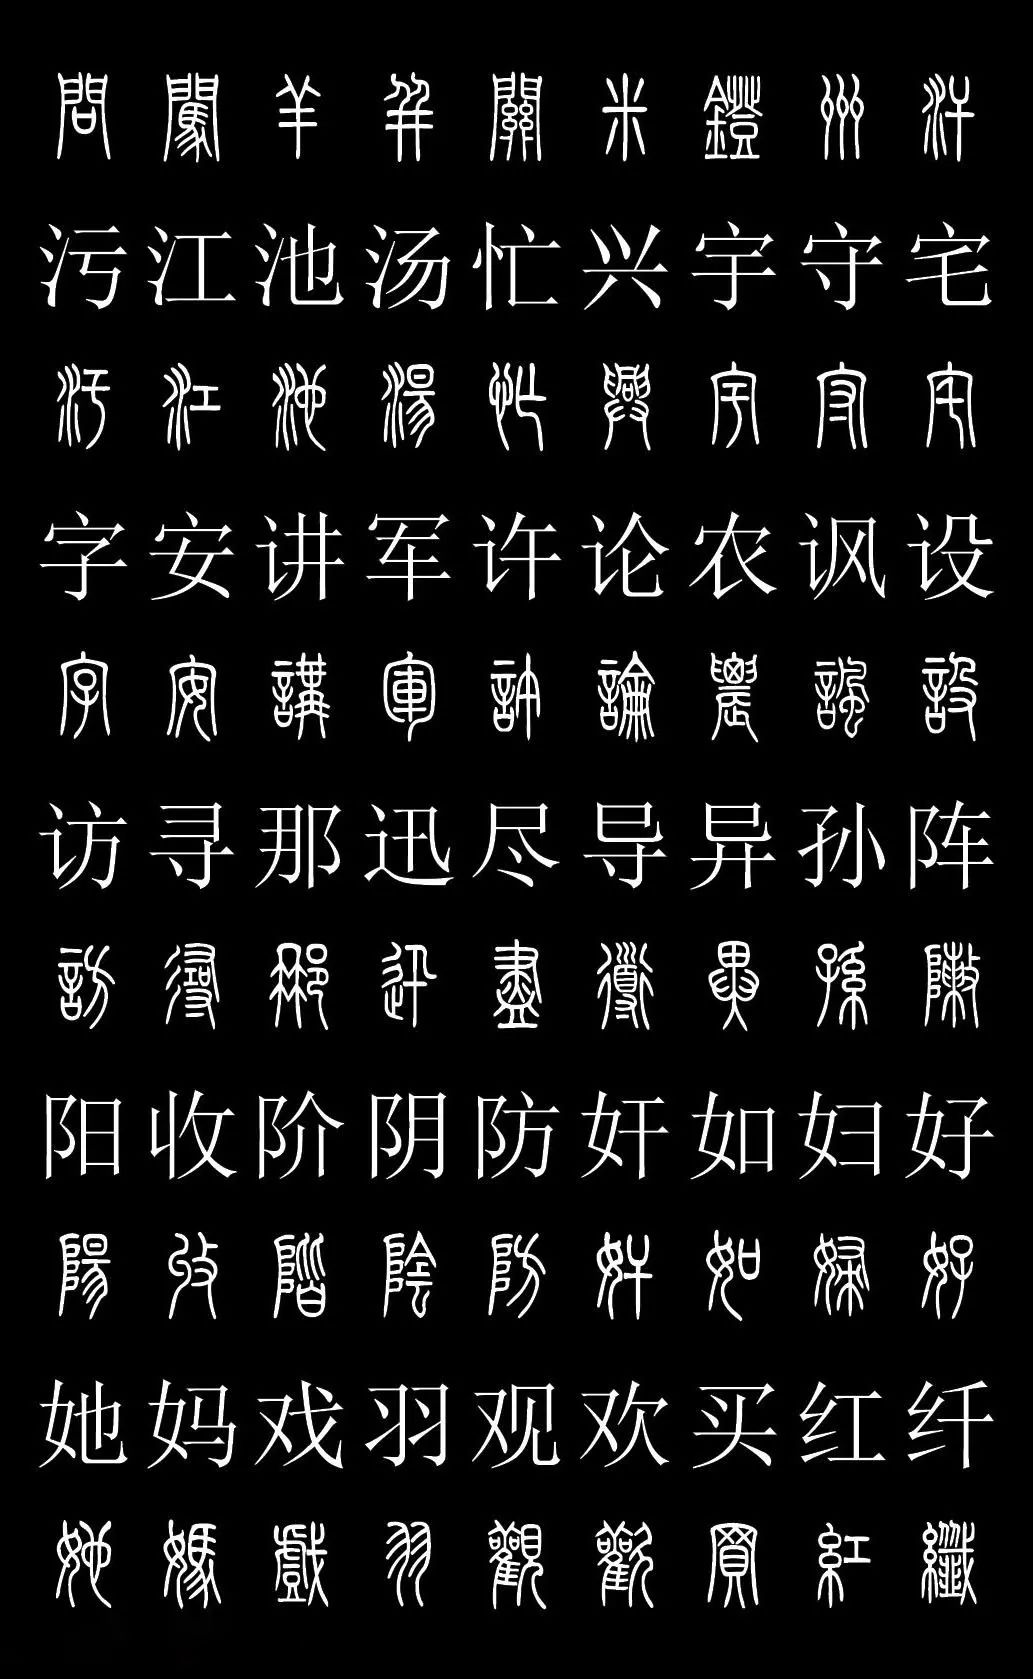 問闖羊并關米鐙州汗
污江池汤忙兴宇守宅
汚江池湯忙興宇守宅
字安讲军许论农讽设
字安講軍許論農諷設
访寻那迅尽导异孙阵
訪尋那迅盡導異孫陳
阳收阶阴防奸如妇好
陽收階陰防奸如婦好
她妈戏羽观欢买红纤
她媽戲羽觀歡買紅纖